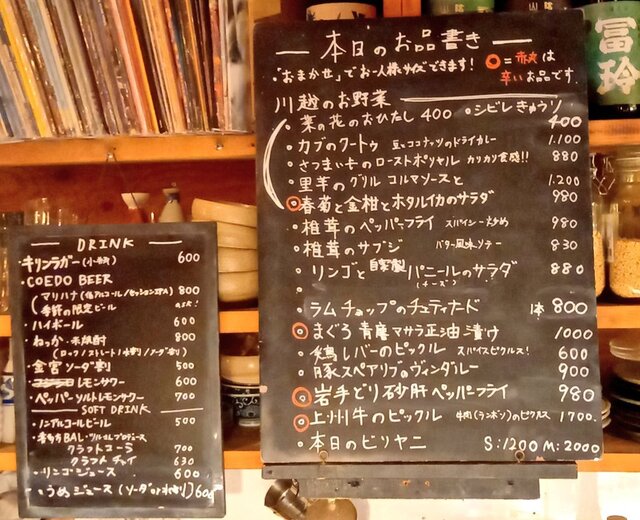 本日のお品書き
・"おまかせ"でお一人様サイズできます！
◎＝赤丸は
辛いお品です。
川越のお野菜
・菜の花のおひたし 400 ・シビレきゅうり 400
・カブのクートゥ 豆とココナッツのドライカレー 1.100
・さつまいものローストポリヤル カリカリ食感!! 880
・里芋のグリル コルマソースと 1.200
◎春菊と金柑とホタルイカのサラダ 980
・椎茸のペッパーフライ スパイシー炒め 980
・椎茸のサブジ バター風味ソテー 830
・リンゴと自家製パニールのサラダ 880
(チーズ)
・ラムチョップのチェティナード 1本 800
◎まぐろ青唐マサラ正油漬け 1000
・鶏レバーのピックル スパイスピクルス! 600
・豚スペアリブのヴィンダルー 900
◎岩手どり砂肝ペッパーフライ 980
◎上州牛のピックル 牛肉(ランボソ)のピクルス 1700
・本日のビリヤニ S:1200 M:2000
冨玲
DRINK
・キリンラガー(小瓶) 600
・COEDO BEER
(マリハナ(低アルコール/セッションIPA) 800
季節の限定ビール ask!
・ハイボール 600
・ねっか 米焼酎 800
(ロック/ストレート/水割り/ソーダ割)
・金宮 ソーダ割 500
レモンサワー 600
・ペッパーソルトレモンサワー 700
SOFT DRINK
・ノンアルコールビール 500
クラフトコーラ 700
クラフトチャイ 630
・リンゴジュース 600
・うめジュース(ソーダor水割り) 600